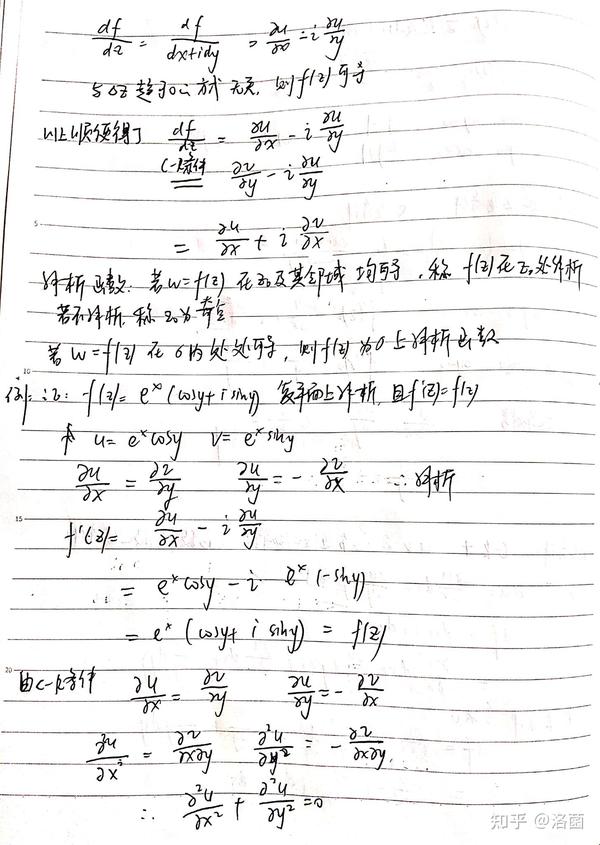 df/dz = df/(dx+idy) = ∂u/∂x - i ∂u/∂y
与Δz趋于0的方式无关, 则f(z)可导
以上顺便得了 df/dz = ∂u/∂x - i ∂u/∂y
C-R条件 ∂v/∂y - i ∂u/∂y
5
= ∂u/∂x + i ∂v/∂x
解析函数: 若w=f(z) 在z₀及其邻域均可导, 称 f(z)在z₀处解析
若不解析, 称z₀为奇点
10
若 w=f(z) 在σ内处处可导, 则f(z)为σ上解析函数
例: 证: f(z)= eˣ(cosy+isiny) 复平面上解析, 且f'(z)=f(z)
u= eˣcosy v= eˣsiny
∂u/∂x = ∂v/∂y ∂u/∂y = - ∂v/∂x ∴解析
15
f'(z)= ∂u/∂x - i ∂u/∂y
= eˣcosy - i eˣ(-siny)
= eˣ(cosy+ i siny) = f(z)
20
由C-R条件 ∂u/∂x = ∂v/∂y ∂u/∂y = - ∂v/∂x
∂²u/∂x² = ∂²v/∂x∂y ∂²u/∂y² = - ∂²v/∂x∂y
∴ ∂²u/∂x² + ∂²u/∂y² =0
知乎 @洛菌